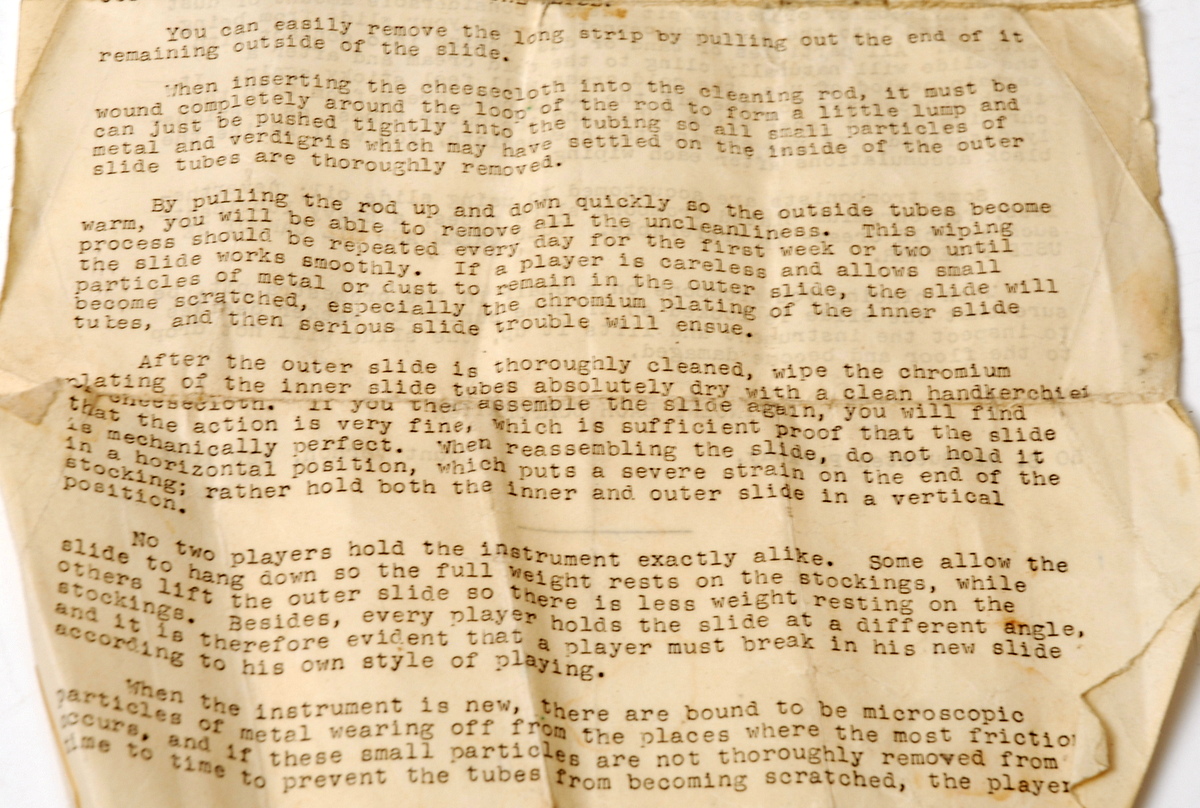 You can easily remove the long strip by pulling out the end of it
remaining outside of the slide.
When inserting the cheesecloth into the cleaning rod, it must be
wound completely around the loop of the rod to form a little lump and
can just be pushed tightly into the tubing so all small particles of
metal and verdigris which may have settled on the inside of the outer
slide tubes are thoroughly removed.
By pulling the rod up and down quickly so the outside tubes become
warm, you will be able to remove all the uncleanliness. This wiping
process should be repeated every day for the first week or two until
the slide works smoothly. If a player is careless and allows small
particles of metal or dust to remain in the outer slide, the slide will
become scratched, especially the chromium plating of the inner slide
tubes, and then serious slide trouble will ensue.
After the outer slide is thoroughly cleaned, wipe the chromium
plating of the inner slide tubes absolutely dry with a clean handkerchief
cheesecloth. If you then assemble the slide again, you will find
that the action is very fine, which is sufficient proof that the slide
is mechanically perfect. When reassembling the slide, do not hold it
in a horizontal position, which puts a severe strain on the end of the
stocking; rather hold both the inner and outer slide in a vertical
position.
No two players hold the instrument exactly alike. Some allow the
slide to hang down so the full weight rests on the stockings, while
others lift the outer slide so there is less weight resting on the
stockings. Besides, every player holds the slide at a different angle,
and it is therefore evident that a player must break in his new slide
according to his own style of playing.
When the instrument is new, there are bound to be microscopic
particles of metal wearing off from the places where the most friction
occurs, and if these small particles are not thoroughly removed from
time to time to prevent the tubes from becoming scratched, the player